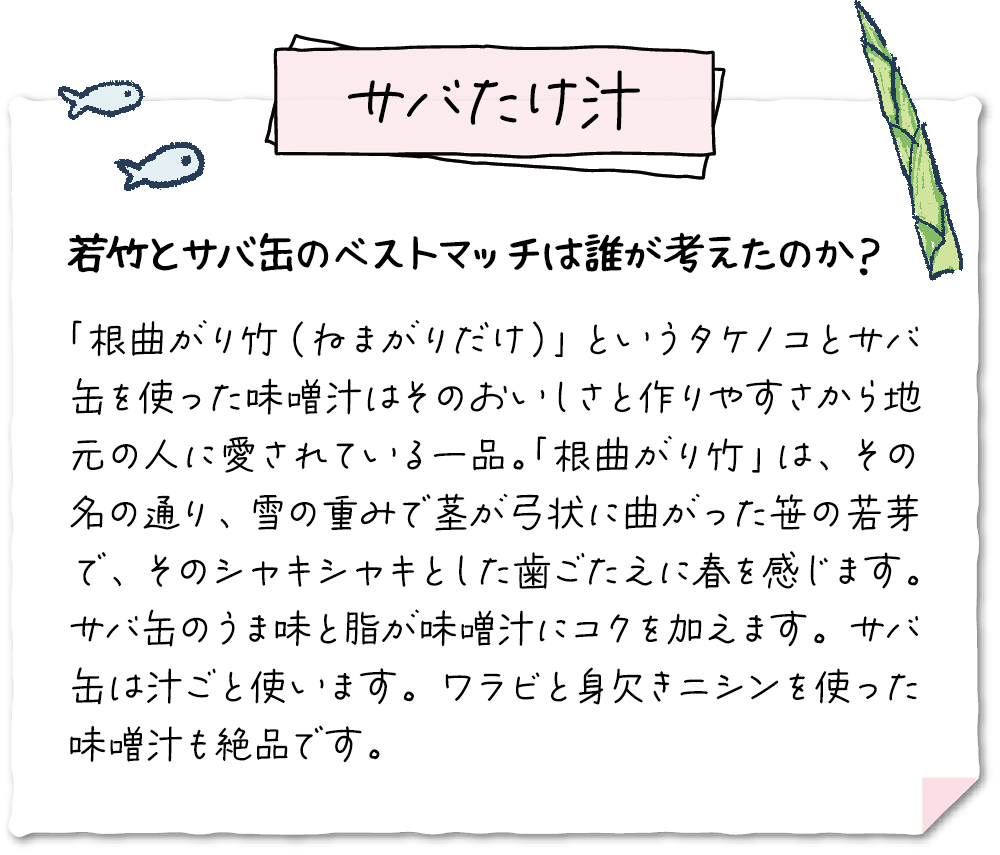 サバたけ汁
若竹とサバ缶のベストマッチは誰が考えたのか？
「根曲がり竹（ねまがりだけ）」というタケノコとサバ
缶を使った味噌汁はそのおいしさと作りやすさから地
元の人に愛されている一品。「根曲がり竹」は、その
名の通り、雪の重みで茎が弓状に曲がった笹の若芽
で、そのシャキシャキとした歯ごたえに春を感じます。
サバ缶のうま味と脂が味噌汁にコクを加えます。サバ
缶は汁ごと使います。ワラビと身欠きニシンを使った
味噌汁も絶品です。